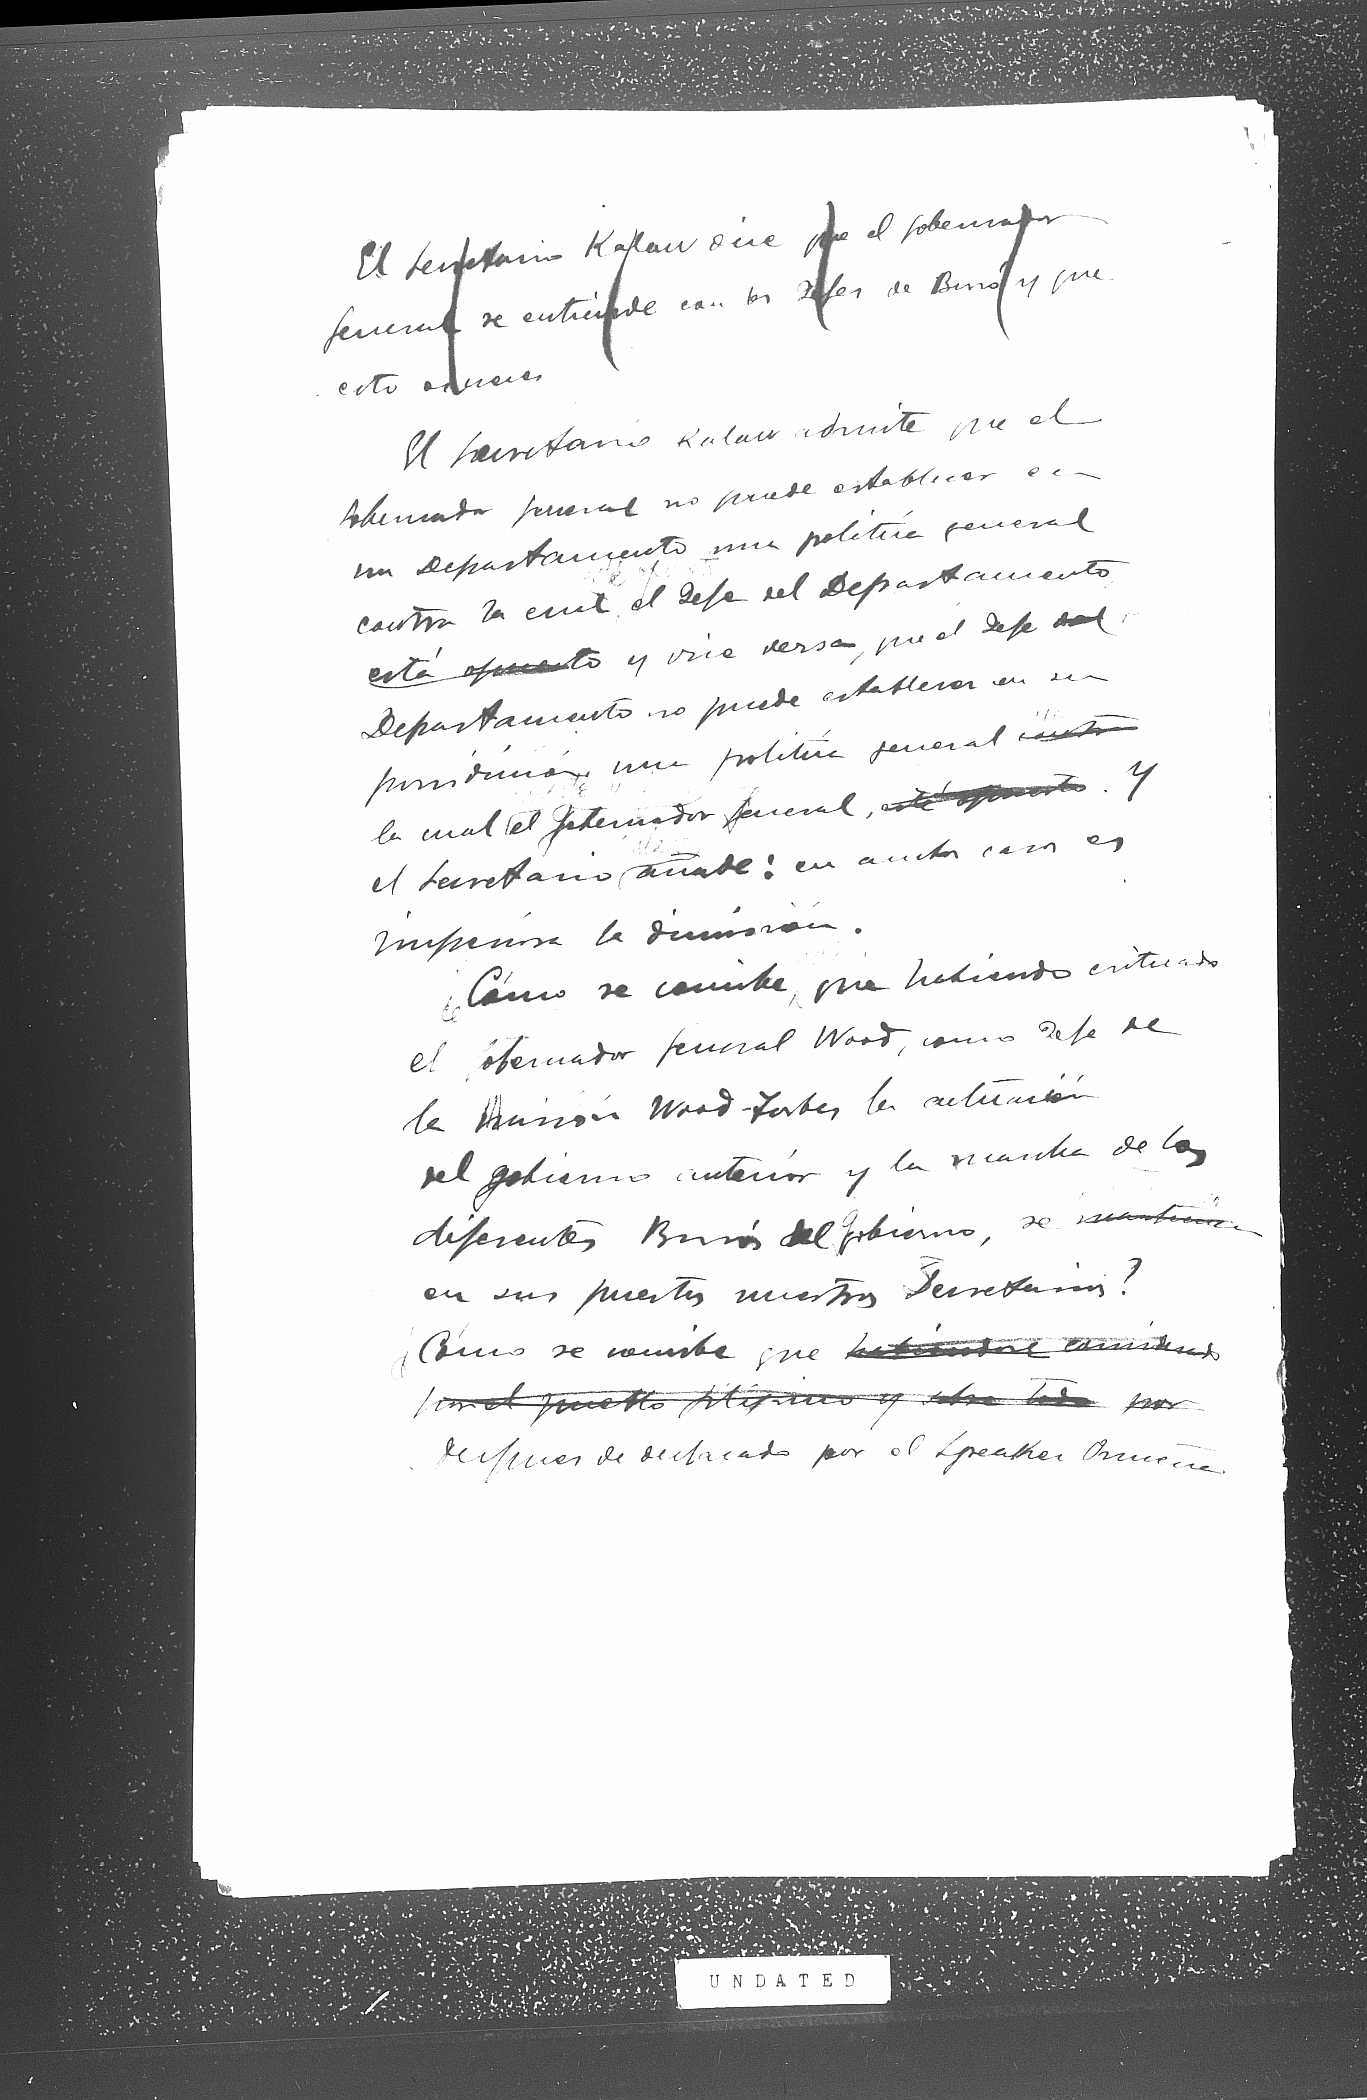 El Secretario Kalaw dice que el Gobernador
General se entiende con los Jefes de Buró y que
esto
El Secretario Kalaw admite que el
Gobernador General no puede establecer en
un Departamento una política general
contra la cual el Jefe del Departamento
está opuesto y vice versa, que el Jefe del
Departamento no puede establecer en su
una política general contra
la cual el Gobernador General, esté opuesto. Y
el Secretario añade: en ambos casos es
imperiosa la dimisión.
¿Cómo se concibe, que habiendo criticado
el Gobernador General Wood, como Jefe de
la Misión Wood-Forbes la actuación
del gobierno anterior y la marcha de los
diferentes Burós del Gobierno, se
en sus puestos nuestros Secretarios?
¿Cómo se concibe que habiendose considerado
por el pueblo filipino y sobre todo por
despues de destacado por el Speaker Osmeña
UNDATED